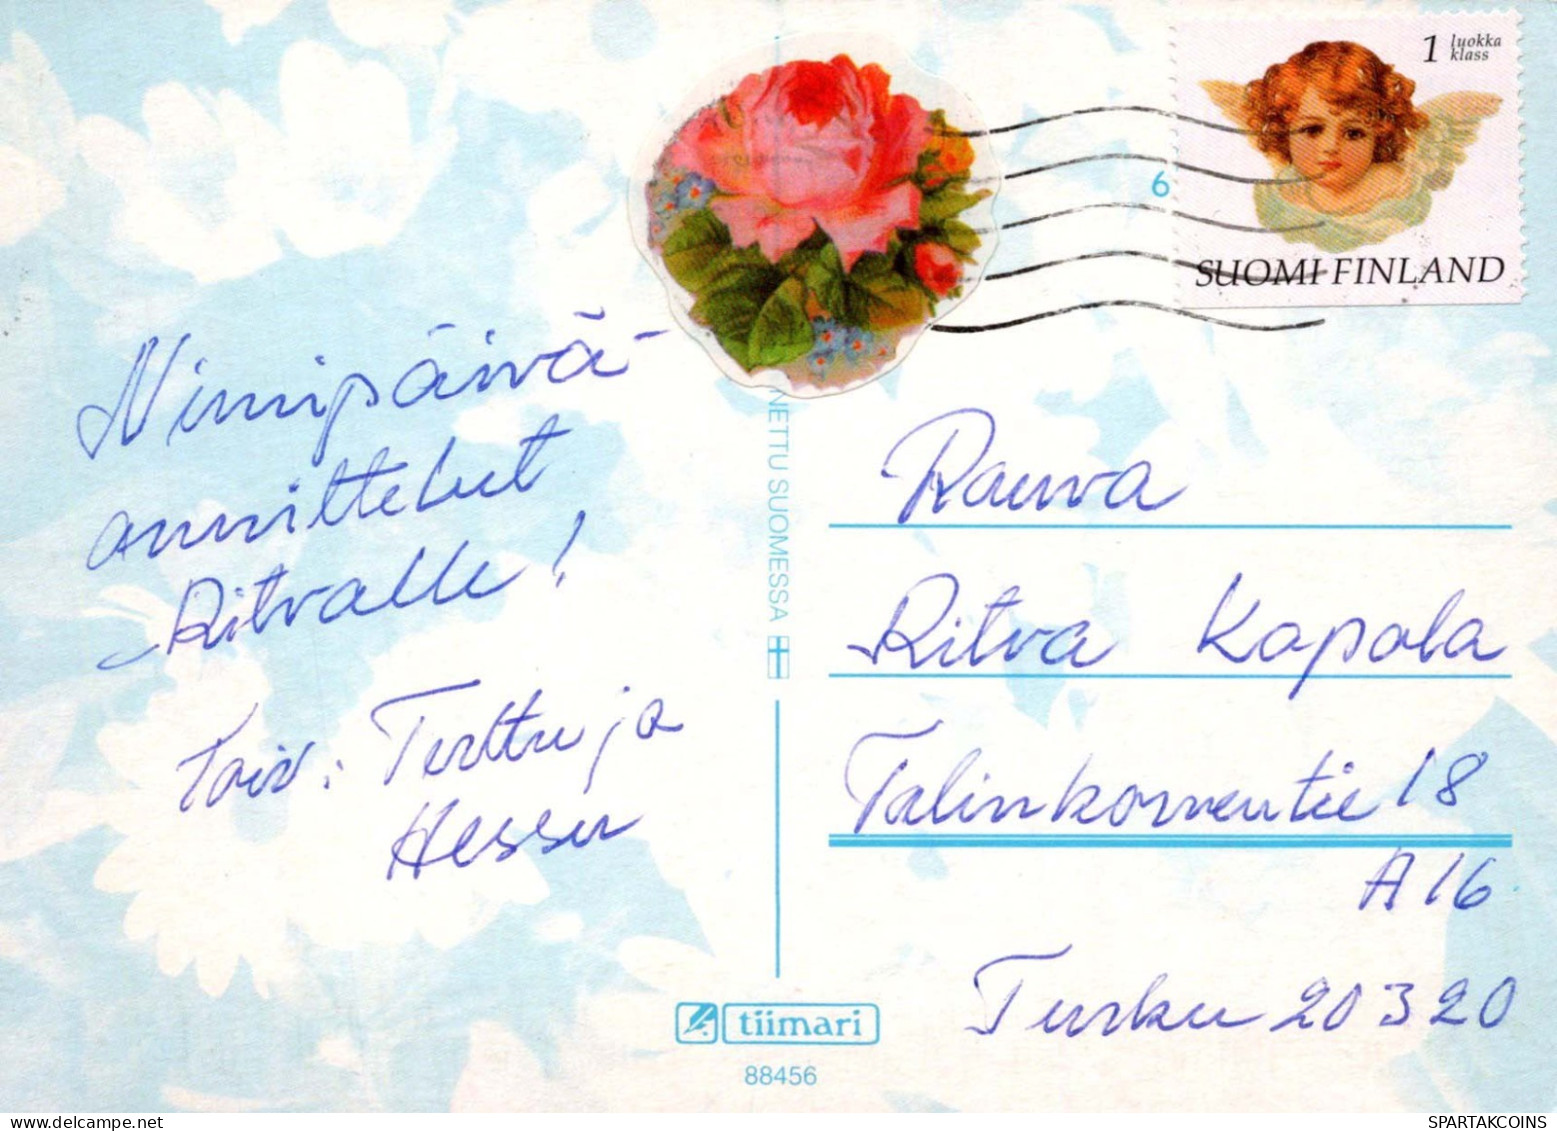 1 luokka
klass
6
SUOMI FINLAND
Nimipäivä-
onnittelut
Ritvalle!
Toiv: Terttu ja
Hessu
NETTU SUOMESSA
Rouva
Ritva Kapala
Talinkorventie 18
A 16
Turku 20320
tiimari
88456
www.delcampe.net
SPARTAKCOINS